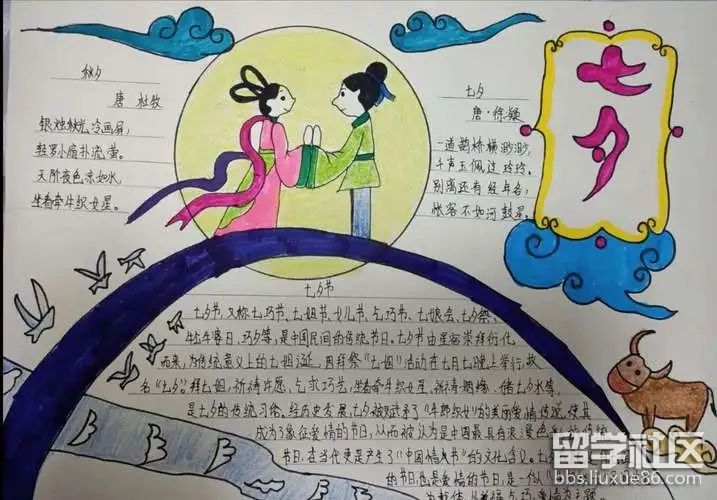 七夕
秋夕
唐 杜牧
银烛秋光冷画屏,
轻罗小扇扑流萤。
天阶夜色凉如水,
坐看牵牛织女星。
七夕
唐·徐凝
一道鹊桥横渺渺,
千声玉佩过玲玲。
别离还有经年客,
怅客不如河鼓星。
七夕节
七夕节,又称七巧节、七姐节、女儿节、乞巧节、七娘会、七夕祭、
牛公牛婆日、巧夕等,是中国民间的传统节日。七夕节由星宿崇拜衍化
而来,为传统意义上的七姐诞,因拜祭“七姐”活动在七月七晚上举行,故
名“七夕”。拜七姐,祈福许愿、乞求巧艺、坐看牵牛织女星、祈祷姻缘、储七夕水等,
是七夕的传统习俗。经历史发展,七夕被赋予了“牛郎织女”的美丽爱情传说,使其
成为了象征爱情的节日,从而被认为是中国最具有浪漫色彩的传统
节日,在当代更是产生了“中国情人节”的文化含义。七夕
的节日也是爱情的节日,是一个以
为载体,以祈福、乞巧、爱情为主题
留学社区
bbs.liuxue86.com